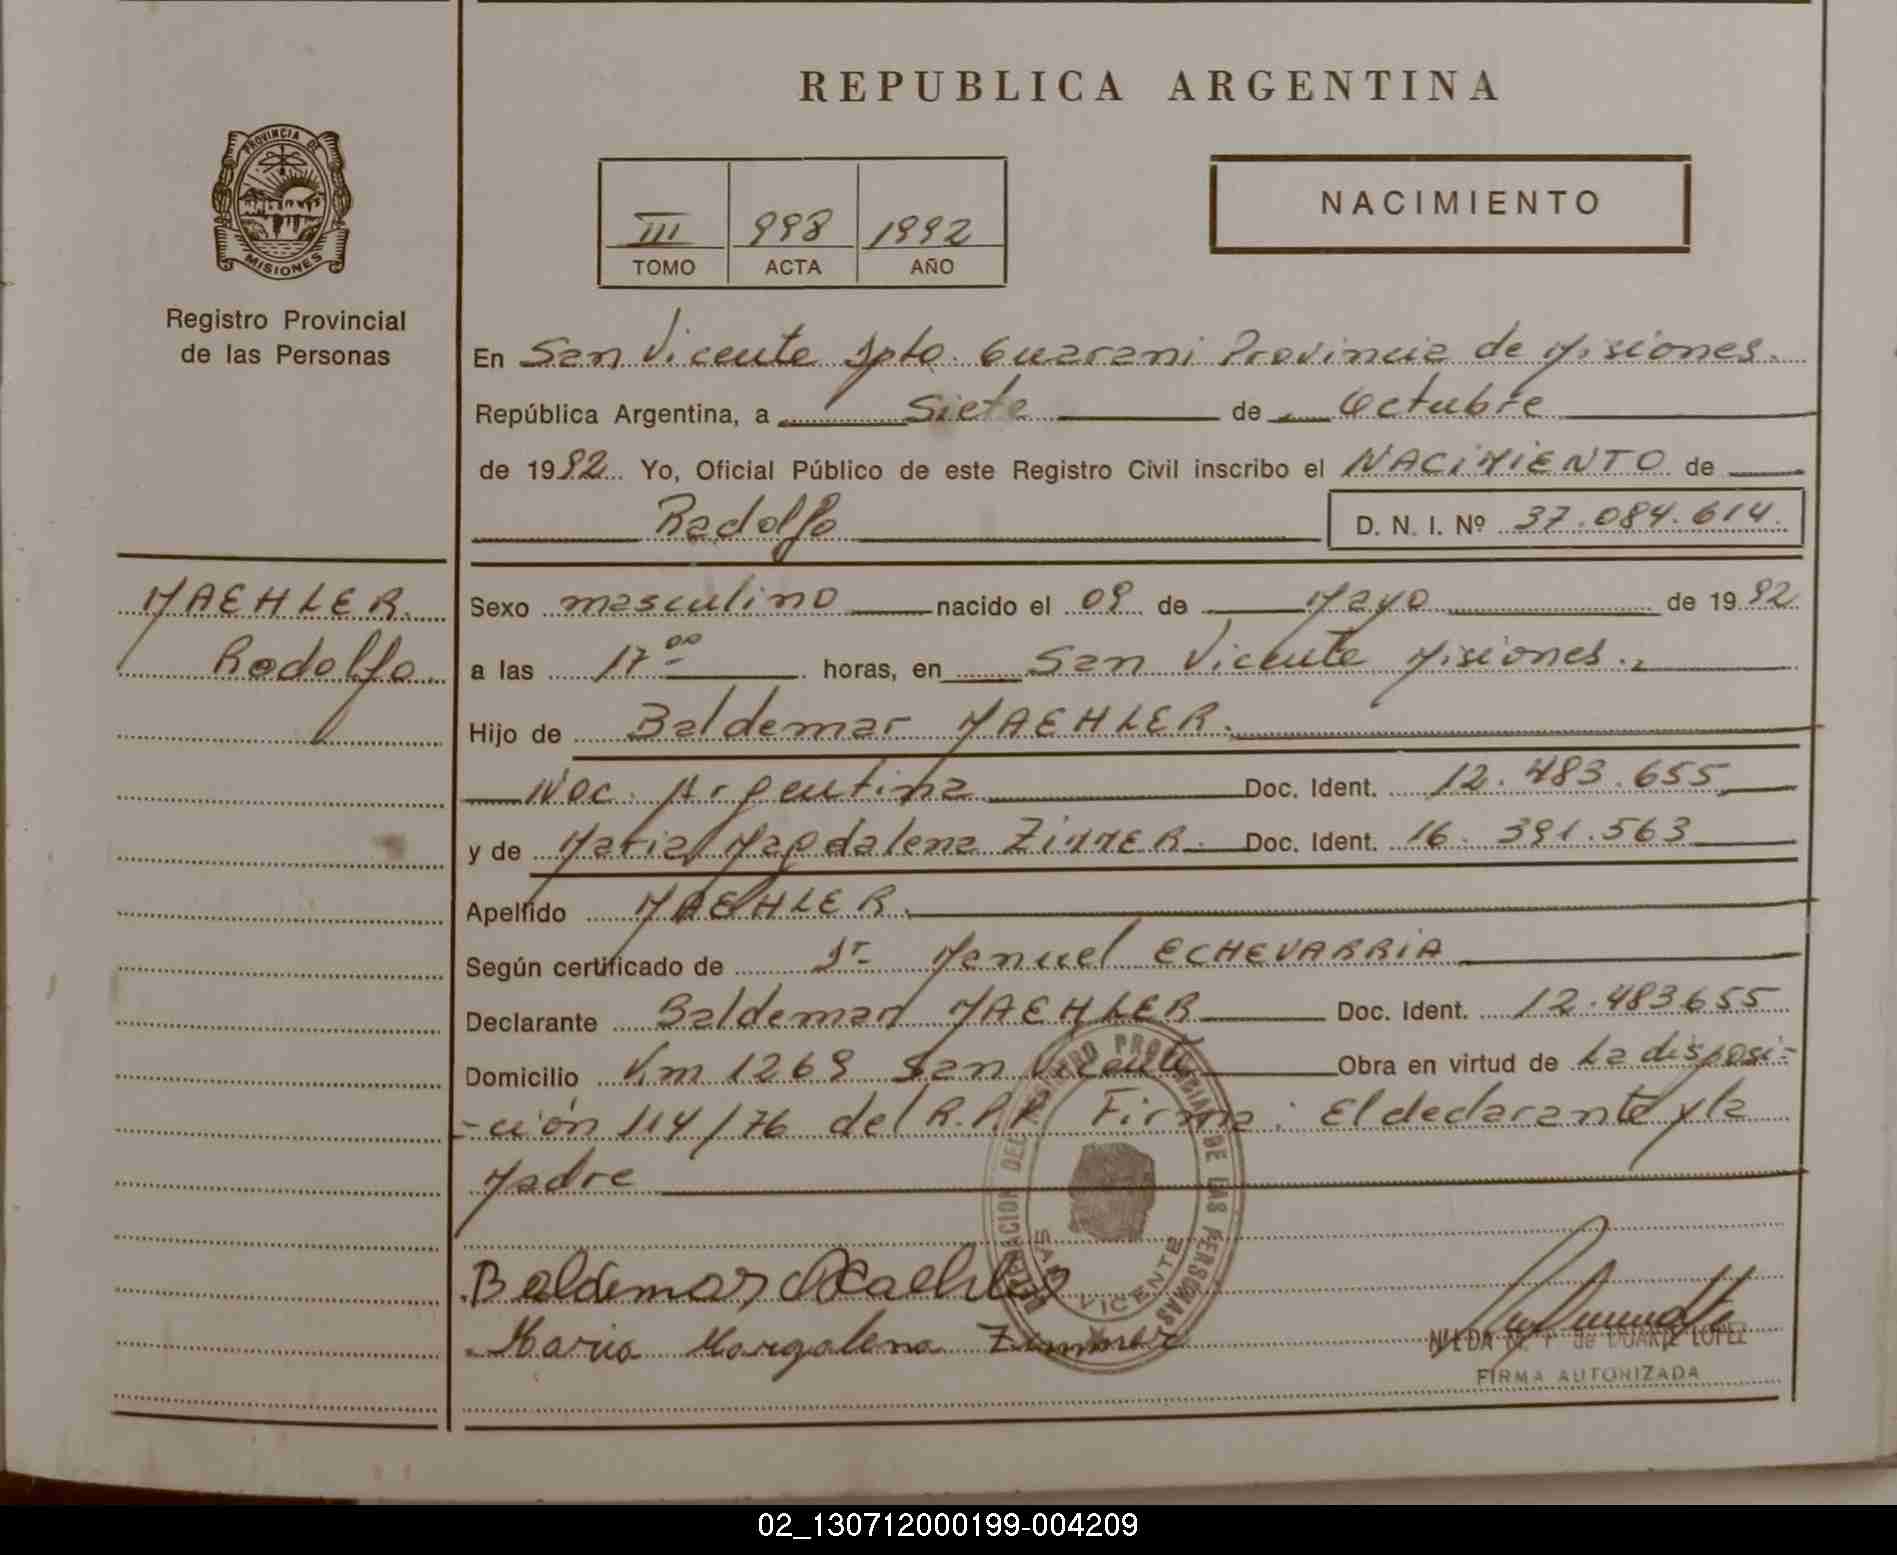 REPUBLICA ARGENTINA
PROVINCIA DE
MISIONES
III 998 1992
TOMO ACTA AÑO
NACIMIENTO
Registro Provincial
de las Personas
En San Vicente Dpto. Guarani Provincia de Misiones.
República Argentina, a Siete de Octubre
de 1992 Yo, Oficial Público de este Registro Civil inscribo el NACIMIENTO de
Rodolfo D. N. I. Nº 37.084.614.
MAEHLER.
Rodolfo
Sexo masculino nacido el 09 de Mayo de 1992
a las 17 00 horas, en San Vicente Misiones.
Hijo de Baldemar MAEHLER.
Nac. Argentina Doc. Ident. 12.483.655
y de Maria Magdalena ZIMMER. Doc. Ident. 16.391.563
Apellido MAEHLER.
Según certificado de Dr Manuel ECHEVARRIA
Declarante Baldemar MAEHLER Doc. Ident. 12.483655
Domicilio Km 1269 San Vicente Obra en virtud de La disposi-
-ción 114/76 del R.P.P. Firma: El declarante y la
Madre
REGISTRO PROVINCIAL DE LAS PERSONAS
SAN VICENTE
Baldemar Maehler
Maria Margalena Zimmer
NILDA de DUARTE LOPEZ
FIRMA AUTORIZADA
02_130712000199-004209